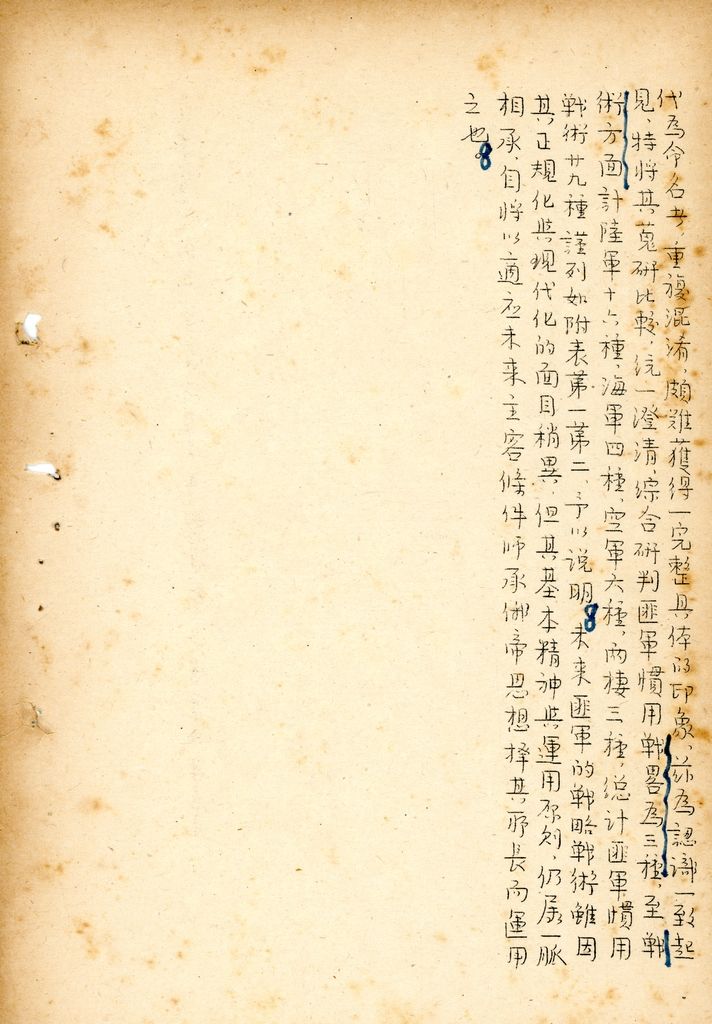 代為命名者，重複混淆，頗難獲得一完整具体的印象，茲為認識一致起
見，特將其蒐研比較，統一澄清，綜合研判匪軍慣用戰畧為三種，至戰
術方面計陸軍十六種，海軍四種，空軍六種，兩棲三種，總計匪軍慣用
戰術廿九種謹列如附表第一第二，予以說明。未來匪軍的戰略戰術雖因
其正規化與現代化的面目稍異，但其基本精神與運用原則，仍屬一脈
相承，自將以適應未來主客條件師承俄帝思想擇其所長而運用
之也。